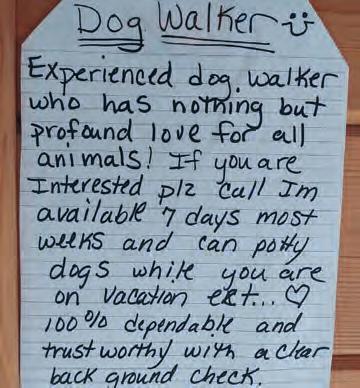 Dog Walker 
Experienced dog walker
who has nothing but
profound love for all
animals! If you are
Interested plz call Im
available 7 days most
weeks and can potty
dogs while you are
on vacation ect... ♡
100% dependable and
trustworthy with a clear
back ground check.